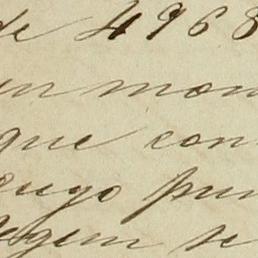 de 4968
um mon
que con
cujo pun
segun se